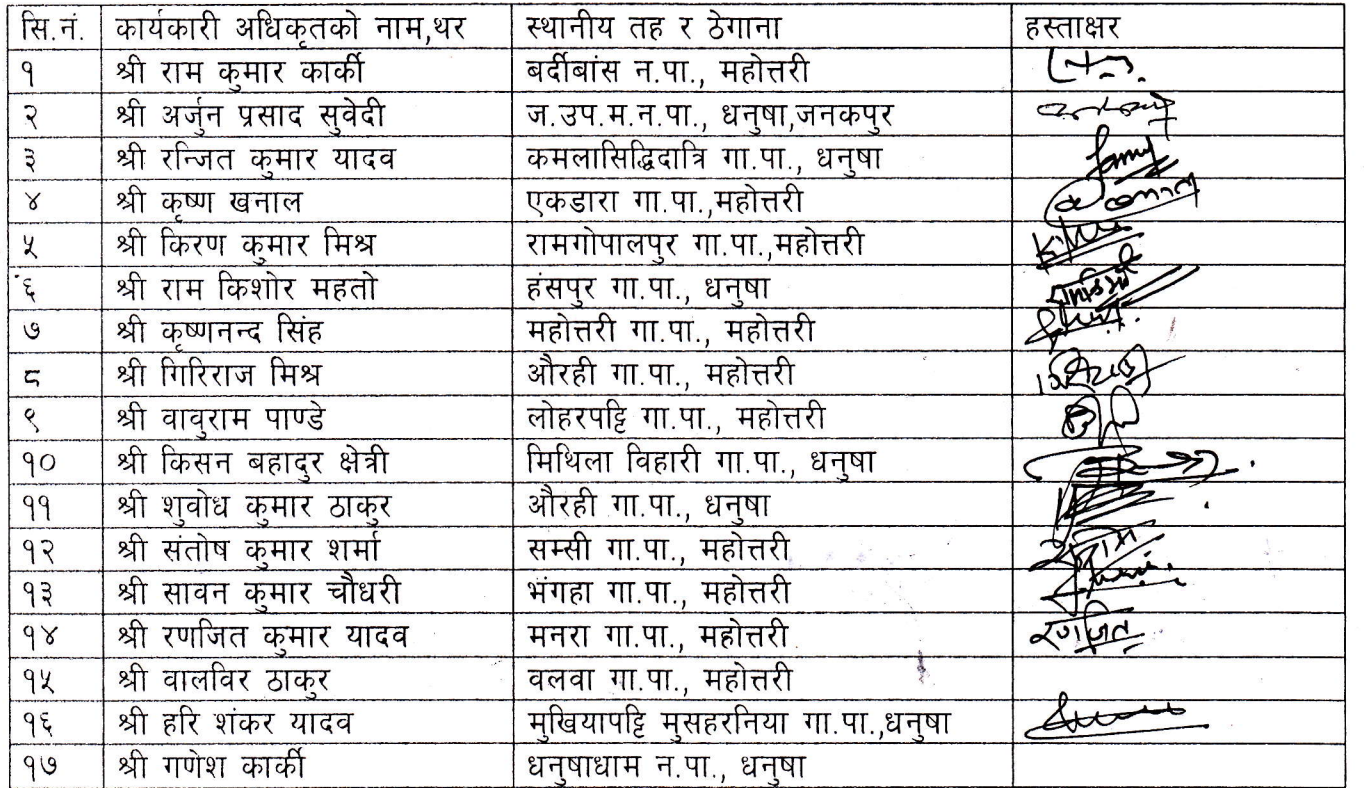 सि.नं. कार्यकारी अधिकृतको नाम,थर स्थानीय तह र ठेगाना हस्ताक्षर
१ श्री राम कुमार कार्की बर्दीबांस न.पा., महोत्तरी
२ श्री अर्जुन प्रसाद सुवेदी ज.उप.म.न.पा., धनुषा,जनकपुर
३ श्री रन्जित कुमार यादव कमलासिद्धिदात्रि गा.पा., धनुषा
४ श्री कृष्ण खनाल एकडारा गा.पा.,महोत्तरी
५ श्री किरण कुमार मिश्र रामगोपालपुर गा.पा.,महोत्तरी
६ श्री राम किशोर महतो हंसपुर गा.पा., धनुषा
७ श्री कृष्णनन्द सिंह महोत्तरी गा.पा., महोत्तरी
८ श्री गिरिराज मिश्र औरही गा.पा., महोत्तरी
९ श्री वावुराम पाण्डे लोहरपट्टि गा.पा., महोत्तरी
१० श्री किसन बहादुर क्षेत्री मिथिला विहारी गा.पा., धनुषा
११ श्री शुवोध कुमार ठाकुर औरही गा.पा., धनुषा
१२ श्री संतोष कुमार शर्मा सम्सी गा.पा., महोत्तरी
१३ श्री सावन कुमार चौधरी भंगहा गा.पा., महोत्तरी
१४ श्री रणजित कुमार यादव मनरा गा.पा., महोत्तरी रणजित
१५ श्री वालविर ठाकुर वलवा गा.पा., महोत्तरी
१६ श्री हरि शंकर यादव मुखियापट्टि मुसहरनिया गा.पा.,धनुषा
१७ श्री गणेश कार्की धनुषाधाम न.पा., धनुषा